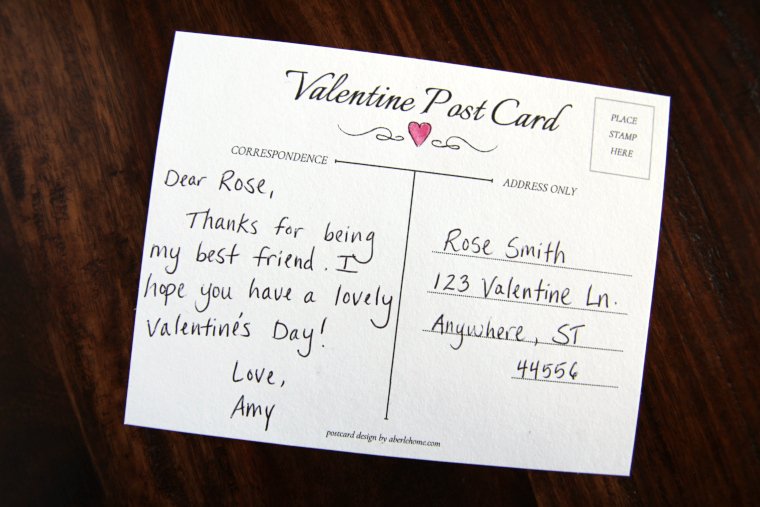 Valentine Post Card
PLACE
STAMP
HERE
CORRESPONDENCE
ADDRESS ONLY
Dear Rose,
Thanks for being
my best friend. I
hope you have a lovely
Valentine's Day!
Love,
Amy
Rose Smith
123 Valentine Ln.
Anywhere, ST
44556
postcard design by aberlehome.com